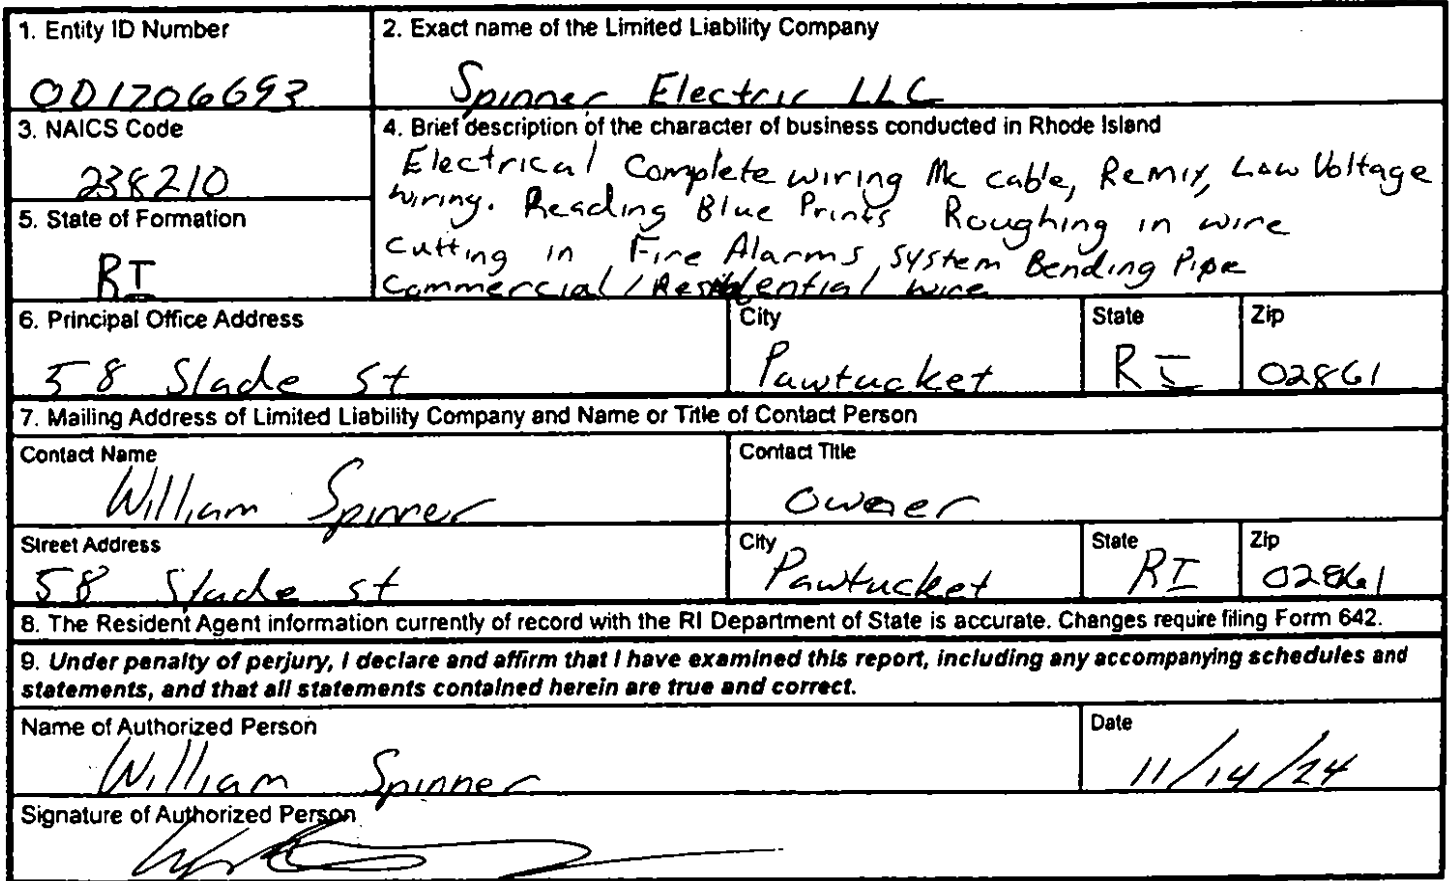 1. Entity ID Number
001706693
2. Exact name of the Limited Liability Company
Spinner Electric LLC
3. NAICS Code
238210
4. Brief description of the character of business conducted in Rhode Island
Electrical Complete wiring Mc cable, Remix, Low Voltage
wiring. Reading Blue Prints Roughing in wire
cutting in Fire Alarms, system Bending Pipe
Commercial/Residential wire
5. State of Formation
RI
6. Principal Office Address
58 Slade St
City
Pawtucket
State
RI
Zip
02861
7. Mailing Address of Limited Liability Company and Name or Title of Contact Person
Contact Name
William Spinner
Contact Title
owner
Street Address
58 Slade st
City
Pawtucket
State
RI
Zip
02861
8. The Resident Agent information currently of record with the RI Department of State is accurate. Changes require filing Form 642.
9. Under penalty of perjury, I declare and affirm that I have examined this report, including any accompanying schedules and
statements, and that all statements contained herein are true and correct.
Name of Authorized Person
William Spinner
Date
11/14/24
Signature of Authorized Person